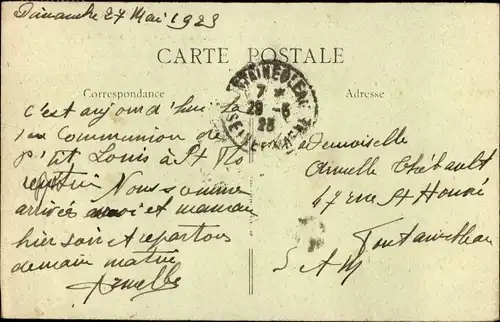 Dimanche 27 Mai 1923
CARTE POSTALE
Correspondance
Adresse
7 *
29 - 5
23
c'est aujourd'hui la
1ère Communion de
p'tit Louis à St Flo
Nous sommes
arrivés moi et maman
hier soir et repartons
demain matin
Armelle
Mademoiselle
Armelle Thébault
47 rue St Honoré
Fontainebleau
S et M